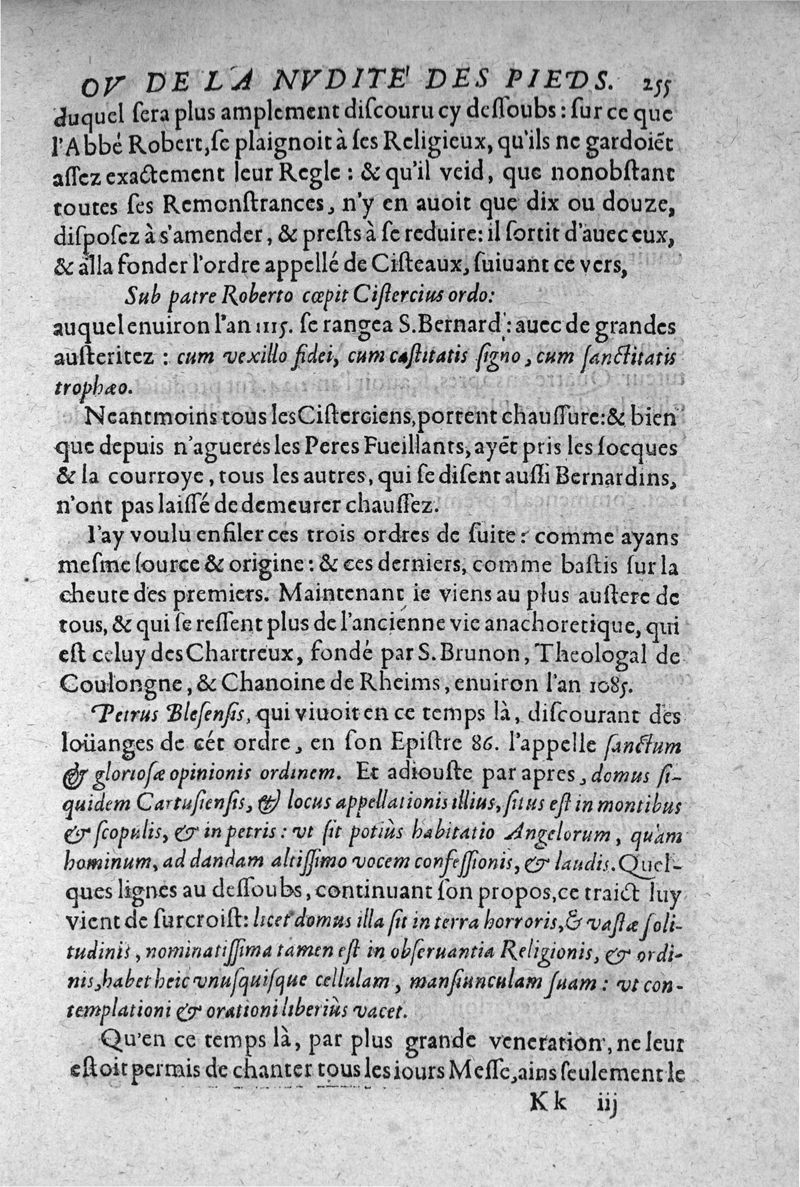 OV DE LA NVDITE' DES PIEDS. 255
duquel ſera plus amplement diſcouru cy deſſoubs : ſur ce que
l'Abbé Robert, ſe plaignoit à ſes Religieux, qu'ils ne gardoiẽt
aſſez exactement leur Regle : & qu'il veid, que nonobſtant
toutes ſes Remonſtrances, n'y en auoit que dix ou douze,
diſpoſez à s'amender, & preſts à ſe reduire: il ſortit d'auec eux,
& alla fonder l'ordre appellé de Ciſteaux, ſuiuant ce vers,
Sub patre Roberto cœpit Ciſtercius ordo:
auquel enuiron l'an 1115. ſe rangea S. Bernard : auec de grandes
auſteritez : cum vexillo fidei, cum caſtitatis ſigno, cum ſanctitatis
trophæo.
Neantmoins tous les Ciſterciens, portent chauſſure: & bien
que depuis n'agueres les Peres Fueillants, ayẽt pris les ſocques
& la courroye, tous les autres, qui ſe diſent auſſi Bernardins,
n'ont pas laiſſé de demeurer chauſſez.
I'ay voulu enfiler ces trois ordres de ſuite : comme ayans
meſme ſource & origine : & ces derniers, comme baſtis ſur la
cheute des premiers. Maintenant ie viens au plus auſtere de
tous, & qui ſe reſſent plus de l'ancienne vie anachoretique, qui
eſt celuy des Chartreux, fondé par S. Brunon, Theologal de
Coulongne, & Chanoine de Rheims, enuiron l'an 1085.
Petrus Bleſenſis, qui viuoit en ce temps là, diſcourant des
loüanges de cét ordre, en ſon Epiſtre 86. l'appelle ſanctum
& glorioſæ opinionis ordinem. Et adiouſte par apres, domus ſi-
quidem Cartuſienſis, & locus appellationis illius, ſitus eſt in montibus
& ſcopulis, & in petris : vt ſit potiùs habitatio Angelorum, quàm
hominum, ad dandam altiſſimo vocem confeſſionis, & laudis. Quel-
ques lignes au deſſoubs, continuant ſon propos, ce traict luy
vient de ſurcroiſt: licet domus illa ſit in terra horroris, & vaſtæ ſoli-
tudinis, nominatiſſima tamen eſt in obſeruantia Religionis, & ordi-
nis, habet heic vnuſquiſque cellulam, manſiunculam ſuam : vt con-
templationi & orationi liberiùs vacet.
Qu'en ce temps là, par plus grande veneration, ne leur
eſtoit permis de chanter tous les iours Meſſe, ains ſeulement le
Kk iij